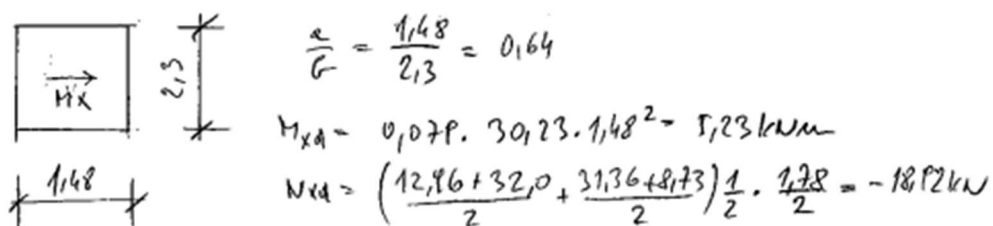 Mx
2,3
1,48
a/b = 1,48/2,3 = 0,64
Mxd = 0,079 · 30,23 · 1,48² = 5,23 kNm
Nxd = ((12,96+32,0)/2 + (31,36+8,73)/2) 1/2 · 1,78/2 = -18,92 kN